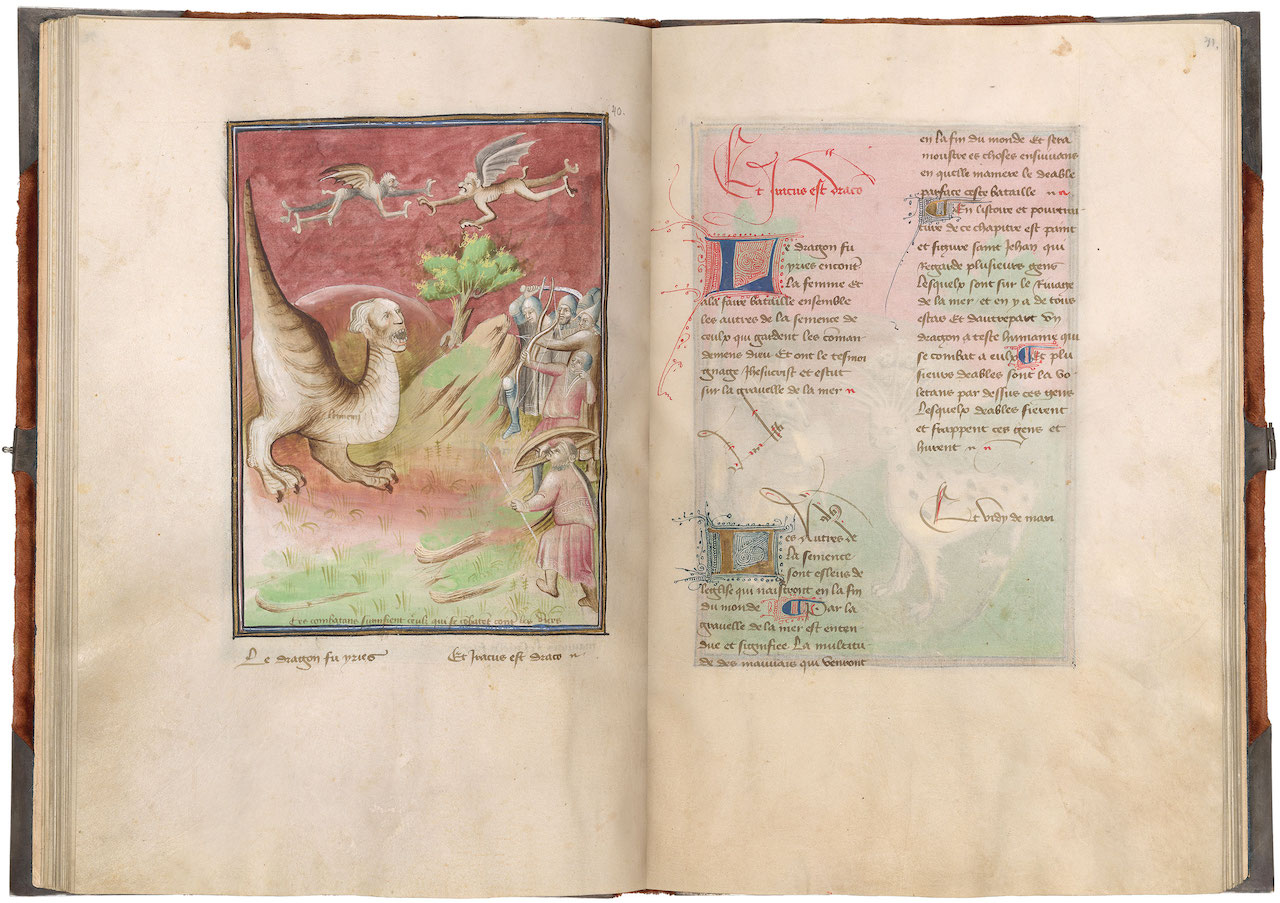 40.
Le dragon fu yries
Et Iratus est draco
41.
Et iratus est draco
Le dragon fu
yries encont
la femme et
ala faire bataille ensemble
les autres de la semence de
ceulx qui gardent les coman
demens dieu Et ont le tesmoi
gnage Jhesucrist et estut
sur la gravelle de la mer
Les Autres de
la semence
sont esleus de
leglise qui naistront en la fin
du monde Par la
gravelle de la mer est enten
due et signifiee La multitu
de des mauvais qui venront
en la fin du monde Et sera
moustre es choses ensuivans
en quelle maniere le deable
parface ceste bataille
En listoire et pourtrai
ture de ce chapitre est paint
et figure saint Jehan qui
Regarde plusieurs gens
Lesquelx sont sur le Rivage
de la mer et en y a de tous
estas Et dautrepart un
dragon a teste humaine qui
se combat a eulx Et plu
sieurs deables sont la vo
letans par dessus ces gens
Lesquelx deables fierent
et frappent ces gens et
hurent
Et vidy de mari